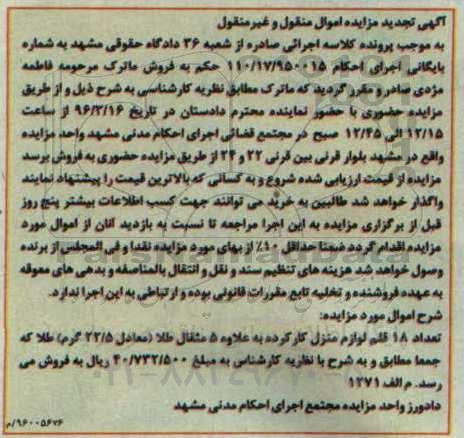 آگهی تجدید مزایده اموال منقول و غیرمنقول
به موجب پرونده کلاسه اجرائی صادره از شعبه ۳۶ دادگاه حقوقی مشهد به شماره
بایگانی اجرای احکام ۱۱۰/۱۷/۹۵۰۰۱۵ حکم به فروش ماترک مرحومه فاطمه
مژدی صادر و مقرر گردید که ماترک مطابق نظریه کارشناسی به شرح ذیل و از طریق
مزایده حضوری با حضور نماینده محترم دادستان در تاریخ ۹۶/۳/۱۶ از ساعت
۱۲/۱۵ الی ۱۲/۴۵ صبح در مجتمع قضائی اجرای احکام مدنی مشهد واحد مزایده
واقع در مشهد بلوار قرنی بین قرنی ۲۲ و ۲۴ از طریق مزایده حضوری به فروش برسد
مزایده از قیمت ارزیابی شده شروع و به کسانی که بالاترین قیمت را پیشنهاد نمایند
واگذار خواهد شد طالبین به خرید می توانند جهت کسب اطلاعات بیشتر پنج روز
قبل از برگزاری مزایده به این اجرا مراجعه تا نسبت به بازدید آنان از اموال مورد
مزایده اقدام گردد ضمنا حداقل ۱۰٪ از بهای مورد مزایده نقدا و فی المجلس از برنده
وصول خواهد شد هزینه های تنظیم سند و نقل و انتقال بالمناصفه و بدهی های معوقه
به عهده فروشنده و تخلیه تابع مقررات قانونی بوده و ارتباطی به این اجرا ندارد.
شرح اموال مورد مزایده:
تعداد ۱۸ قلم لوازم منزل کارکرده به علاوه ۵ مثقال طلا (معادل ۲۲/۵ گرم) طلا که
جمعا مطابق و به شرح با نظریه کارشناس به مبلغ ۴۰/۷۳۲/۵۰۰ ریال به فروش می
رسد. م الف ۱۲۷۱
دادورز واحد مزایده مجتمع اجرای احکام مدنی مشهد
۹۶۰۰۵۶۷۶/م